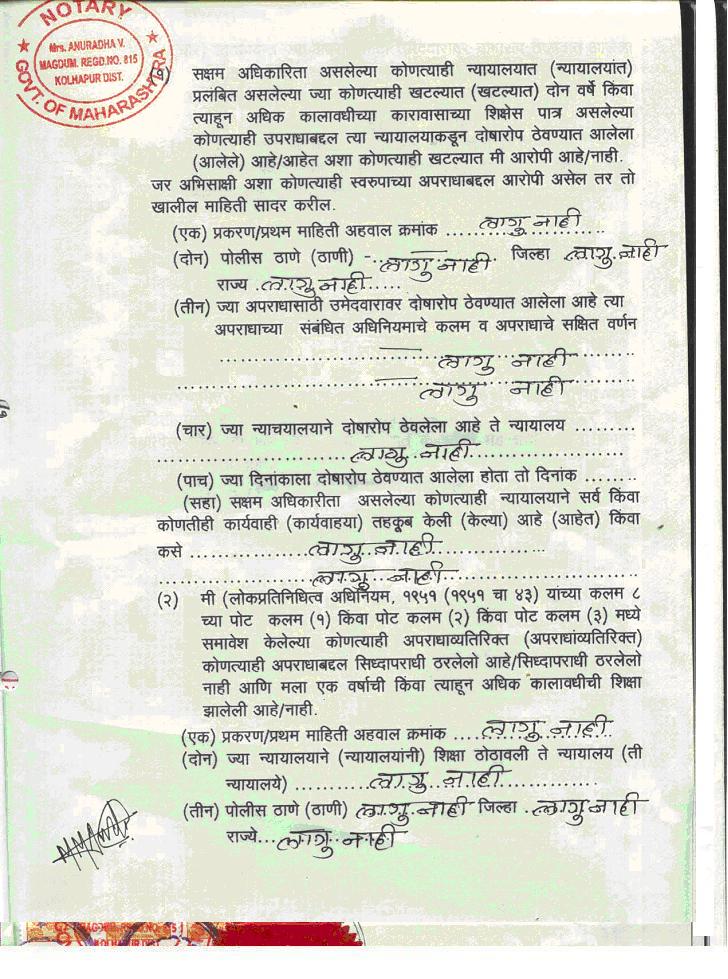 NOTARY
Mrs. ANURADHA V.
MAGDUM. REGD.NO. 815
KOLHAPUR DIST.
GOVT. OF MAHARASHTRA
सक्षम अधिकारिता असलेल्या कोणत्याही न्यायालयात (न्यायालयांत)
प्रलंबित असलेल्या ज्या कोणत्याही खटल्यात (खटल्यात) दोन वर्षे किंवा
त्याहून अधिक कालावधीच्या कारावासाच्या शिक्षेस पात्र असलेल्या
कोणत्याही उपराधाबद्दल त्या न्यायालयाकडून दोषारोप ठेवण्यात आलेला
(आलेले) आहे/आहेत अशा कोणत्याही खटल्यात मी आरोपी आहे/नाही.
जर अभिसाक्षी अशा कोणत्याही स्वरुपाच्या अपराधाबद्दल आरोपी असेल तर तो
खालील माहिती सादर करील.
(एक) प्रकरण/प्रथम माहिती अहवाल क्रमांक ... लागु नाही
(दोन) पोलीस ठाणे (ठाणी) -.. लागु नाही. जिल्हा लागु नाही
राज्य . लागु नाही.....
(तीन) ज्या अपराधासाठी उमेदवारावर दोषारोप ठेवण्यात आलेला आहे त्या
अपराधाच्या संबंधित अधिनियमाचे कलम व अपराधाचे सक्षित वर्णन
............ लागु नाही ........
............ लागु नाही
(चार) ज्या न्याचयालयाने दोषारोप ठेवलेला आहे ते न्यायालय .........
............ लागु नाही ............
(पाच) ज्या दिनांकाला दोषारोप ठेवण्यात आलेला होता तो दिनांक ........
(सहा) सक्षम अधिकारीता असलेल्या कोणत्याही न्यायालयाने सर्व किंवा
कोणतीही कार्यवाही (कार्यवाहया) तहकूब केली (केल्या) आहे (आहेत) किंवा
कसे ............ लागु नाही ............
............ लागु नाही ............
(२) मी (लोकप्रतिनिधित्व अधिनियम, १९५१ (१९५१ चा ४३) यांच्या कलम ८
च्या पोट कलम (१) किंवा पोट कलम (२) किंवा पोट कलम (३) मध्ये
समावेश केलेल्या कोणत्याही अपराधाव्यतिरिक्त (अपराधांव्यतिरिक्त)
कोणत्याही अपराधाबद्दल सिध्दापराधी ठरलेलो आहे/सिध्दापराधी ठरलेलो
नाही आणि मला एक वर्षाची किंवा त्याहून अधिक कालावधीची शिक्षा
झालेली आहे/नाही.
(एक) प्रकरण/प्रथम माहिती अहवाल क्रमांक .... लागु नाही.
(दोन) ज्या न्यायालयाने (न्यायालयांनी) शिक्षा ठोठावली ते न्यायालय (ती
न्यायालये) ........... लागु नाही ............
(तीन) पोलीस ठाणे (ठाणी) लागु नाही जिल्हा . लागु नाही
राज्ये... लागु नाही